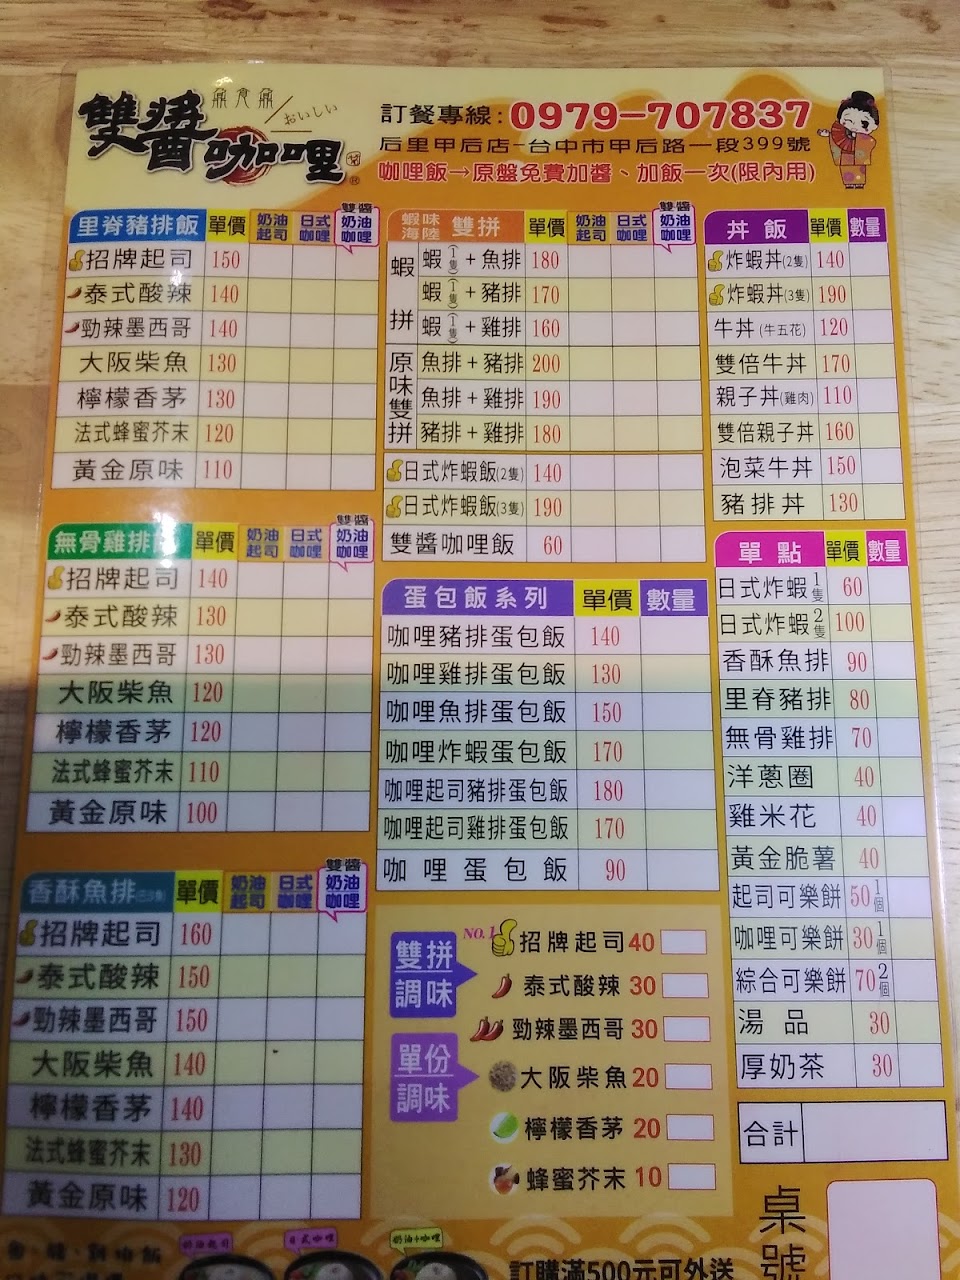 鼎食鼎
おいしい
雙醬咖哩
訂餐專線:0979-707837
后里甲后店-台中市甲后路一段399號
咖哩飯→原盤免費加醬、加飯一次(限內用)
里脊豬排飯 單價 奶油起司 日式咖哩 雙醬 奶油咖哩
招牌起司 150
泰式酸辣 140
勁辣墨西哥 140
大阪柴魚 130
檸檬香茅 130
法式蜂蜜芥末 120
黃金原味 110
無骨雞排 單價 奶油起司 日式咖哩 雙醬 奶油咖哩
招牌起司 140
泰式酸辣 130
勁辣墨西哥 130
大阪柴魚 120
檸檬香茅 120
法式蜂蜜芥末 110
黃金原味 100
香酥魚排 單價 奶油起司 日式咖哩 雙醬 奶油咖哩
招牌起司 160
泰式酸辣 150
勁辣墨西哥 150
大阪柴魚 140
檸檬香茅 140
法式蜂蜜芥末 130
黃金原味 120
蝦味海陸 雙拼 單價 奶油起司 日式咖哩 雙醬 奶油咖哩
蝦拼
蝦(1隻)+魚排 180
蝦(1隻)+豬排 170
蝦(1隻)+雞排 160
原味雙拼
魚排+豬排 200
魚排+雞排 190
豬排+雞排 180
日式炸蝦飯(2隻) 140
日式炸蝦飯(3隻) 190
雙醬咖哩飯 60
蛋包飯系列 單價 數量
咖哩豬排蛋包飯 140
咖哩雞排蛋包飯 130
咖哩魚排蛋包飯 150
咖哩炸蝦蛋包飯 170
咖哩起司豬排蛋包飯 180
咖哩起司雞排蛋包飯 170
咖哩蛋包飯 90
雙拼調味
單份調味
NO.1 招牌起司 40
泰式酸辣 30
勁辣墨西哥 30
大阪柴魚 20
檸檬香茅 20
蜂蜜芥末 10
丼飯 單價 數量
炸蝦丼(2隻) 140
炸蝦丼(3隻) 190
牛丼(牛五花) 120
雙倍牛丼 170
親子丼(雞肉) 110
雙倍親子丼 160
泡菜牛丼 150
豬排丼 130
單點 單價 數量
日式炸蝦1隻 60
日式炸蝦2隻 100
香酥魚排 90
里脊豬排 80
無骨雞排 70
洋蔥圈 40
雞米花 40
黃金脆薯 40
起司可樂餅 50 1個
咖哩可樂餅 30 1個
綜合可樂餅 70 2個
湯品 30
厚奶茶 30
合計
桌號
奶油起司
日式咖哩
奶油+咖哩
訂購滿500元可外送